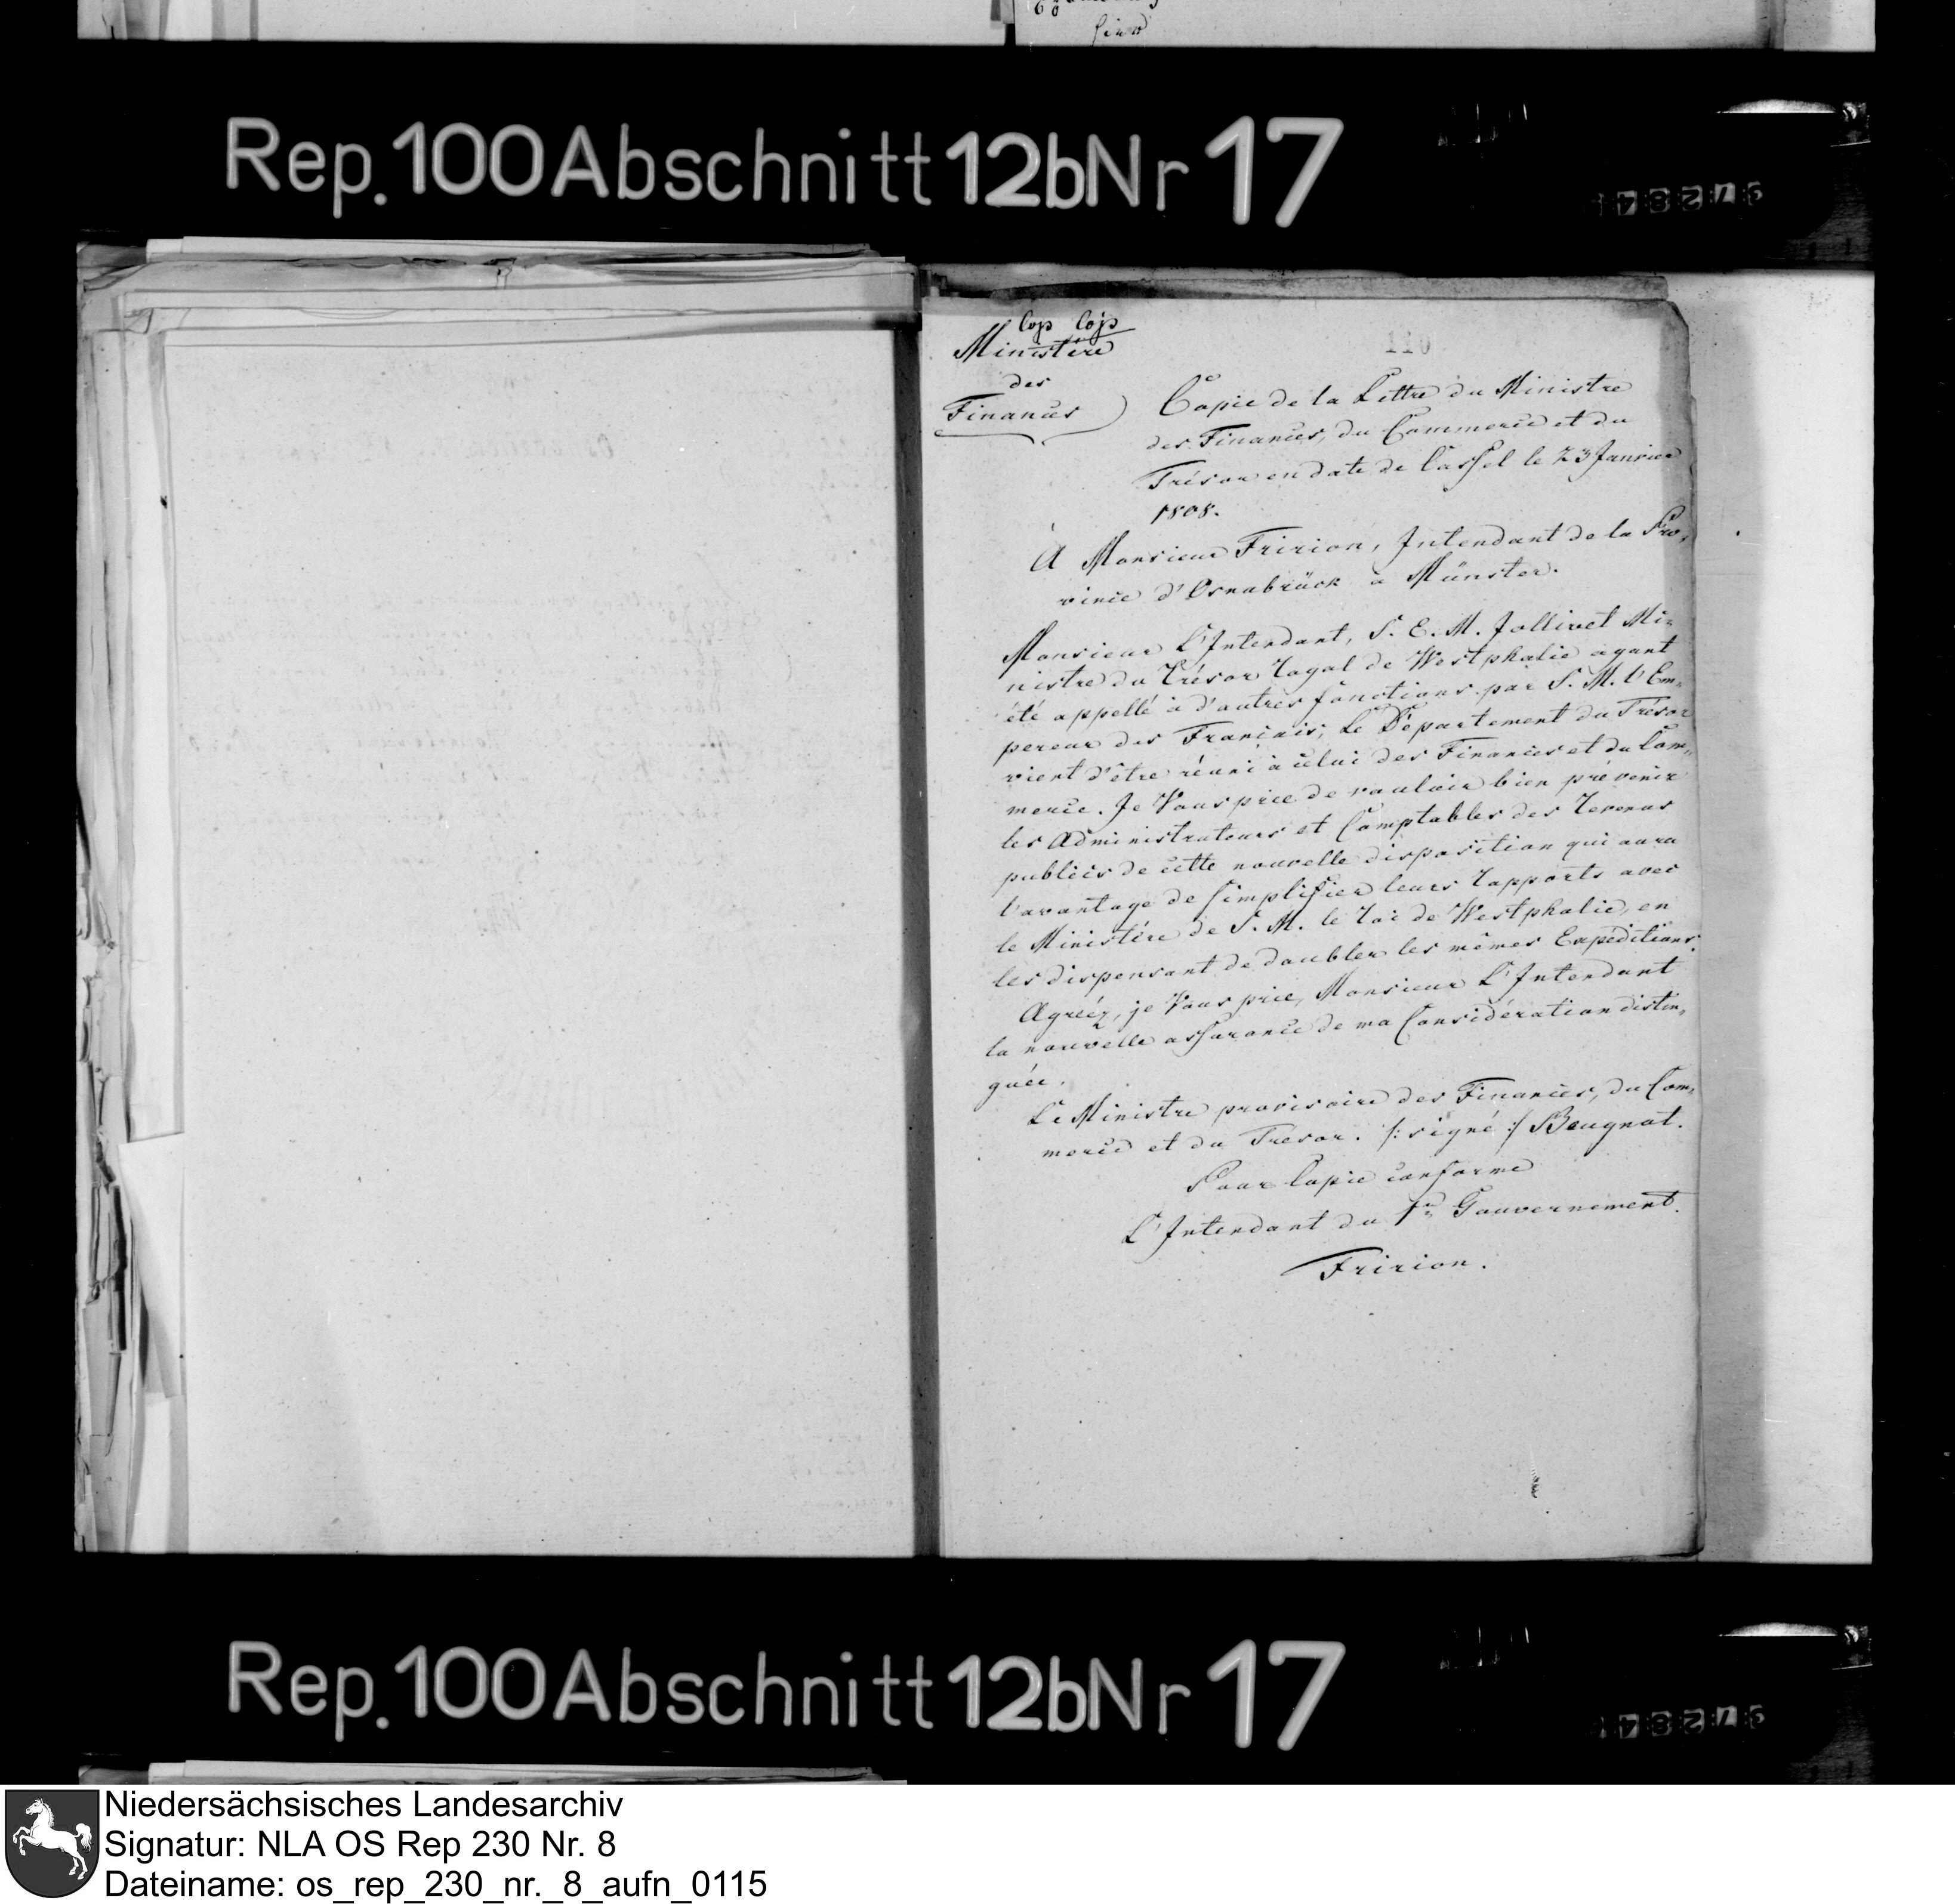 Rep. 100 Abschnitt 12b Nr 17
Cop Cop
Ministère
des
Finances
110
Copie de la Lettre du Ministre
des Finances, du Commerce et du
Trésor en date de Cassel le 23 Janvier
1808.
À Monsieur Fririon, Intendant de la Pro-
vince d'Osnabrück à Münster.
Monsieur L'Intendant, S. E. M. Jollivet Mi-
nistre du Trésor Royal de Westphalie ayant
été appellé à d'autres fonctions par S. M. l'Em-
pereur des Français, Le Département du Trésor
vient d'être réuni à celui des Finances et du Com-
merce. Je Vous prie de vouloir bien prévenir
les Administrateurs et Comptables des Revenus
publics de cette nouvelle disposition qui aura
l'avantage de simplifier leurs rapports avec
le Ministère de S. M. le Roi de Westphalie, en
les dispensant de doubler les mêmes Expéditions.
Agréez, je Vous prie, Monsieur L'Intendant
la nouvelle assurance de ma Considération distin-
guée.
Le Ministre provisoire des Finances, du Com-
merce et du Tresor. /: signé :/ Beugnot.
Pour Copie conforme
L'Intendant du 1er Gouvernement.
Fririon.
Rep. 100 Abschnitt 12b Nr 17
Niedersächsisches Landesarchiv
Signatur: NLA OS Rep 230 Nr. 8
Dateiname: os_rep_230_nr._8_aufn_0115